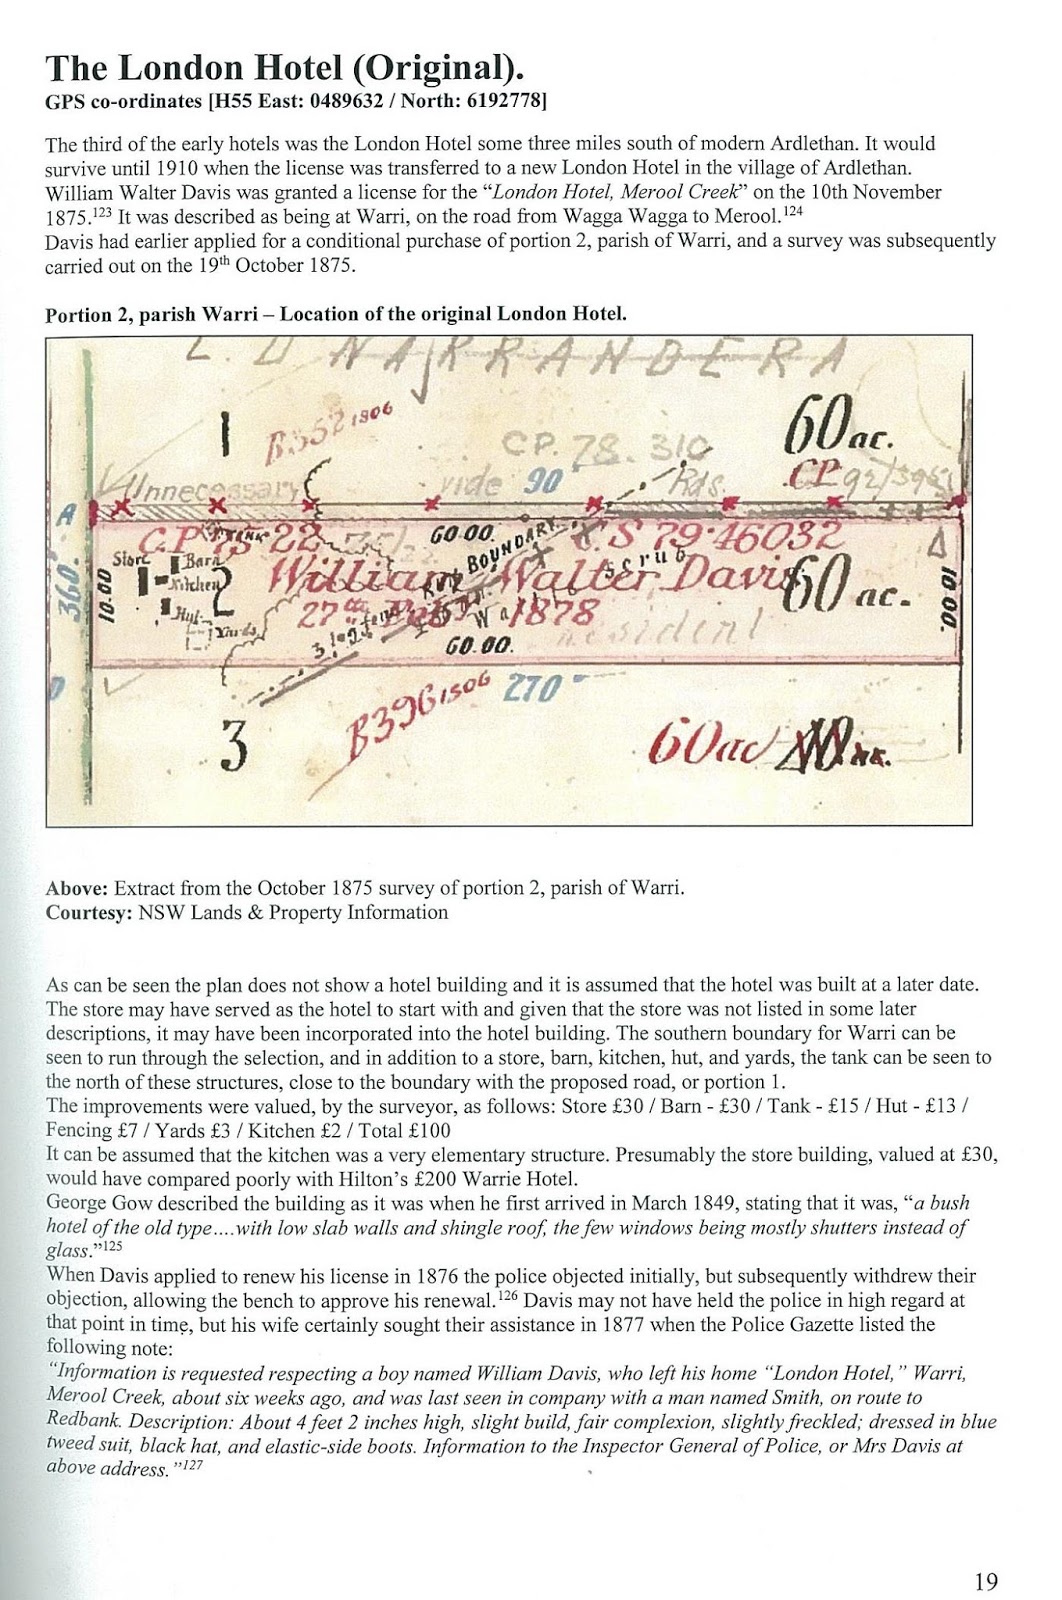 The London Hotel (Original).
GPS co-ordinates [H55 East: 0489632 / North: 6192778]
The third of the early hotels was the London Hotel some three miles south of modern Ardlethan. It would
survive until 1910 when the license was transferred to a new London Hotel in the village of Ardlethan.
William Walter Davis was granted a license for the “London Hotel, Merool Creek” on the 10th November
1875.123 It was described as being at Warri, on the road from Wagga Wagga to Merool.124
Davis had earlier applied for a conditional purchase of portion 2, parish of Warri, and a survey was subsequently
carried out on the 19th October 1875.
Portion 2, parish Warri – Location of the original London Hotel.
NARRANDERA
1
B352 1906
CP. 78. 310
60 ac.
Unnecessary
vide
90°
Rds.
CP
A
TANK
60.00.
BOUNDARY
C.S 79·46032
Store
Barn
Kitchen
2
William Walter Davis
Scrub
60 ac.
360°
10.00
Hut
Yards
27th Feb 1878
RUN
Resident
10.00.
60.00.
D
B396 1506
270°
3
60ac
Above: Extract from the October 1875 survey of portion 2, parish of Warri.
Courtesy: NSW Lands & Property Information
As can be seen the plan does not show a hotel building and it is assumed that the hotel was built at a later date.
The store may have served as the hotel to start with and given that the store was not listed in some later
descriptions, it may have been incorporated into the hotel building. The southern boundary for Warri can be
seen to run through the selection, and in addition to a store, barn, kitchen, hut, and yards, the tank can be seen to
the north of these structures, close to the boundary with the proposed road, or portion 1.
The improvements were valued, by the surveyor, as follows: Store £30 / Barn - £30 / Tank - £15 / Hut - £13 /
Fencing £7 / Yards £3 / Kitchen £2 / Total £100
It can be assumed that the kitchen was a very elementary structure. Presumably the store building, valued at £30,
would have compared poorly with Hilton’s £200 Warrie Hotel.
George Gow described the building as it was when he first arrived in March 1849, stating that it was, “a bush
hotel of the old type….with low slab walls and shingle roof, the few windows being mostly shutters instead of
glass.”125
When Davis applied to renew his license in 1876 the police objected initially, but subsequently withdrew their
objection, allowing the bench to approve his renewal.126 Davis may not have held the police in high regard at
that point in time, but his wife certainly sought their assistance in 1877 when the Police Gazette listed the
following note:
“Information is requested respecting a boy named William Davis, who left his home “London Hotel,” Warri,
Merool Creek, about six weeks ago, and was last seen in company with a man named Smith, on route to
Redbank. Description: About 4 feet 2 inches high, slight build, fair complexion, slightly freckled; dressed in blue
tweed suit, black hat, and elastic-side boots. Information to the Inspector General of Police, or Mrs Davis at
above address.”127
19